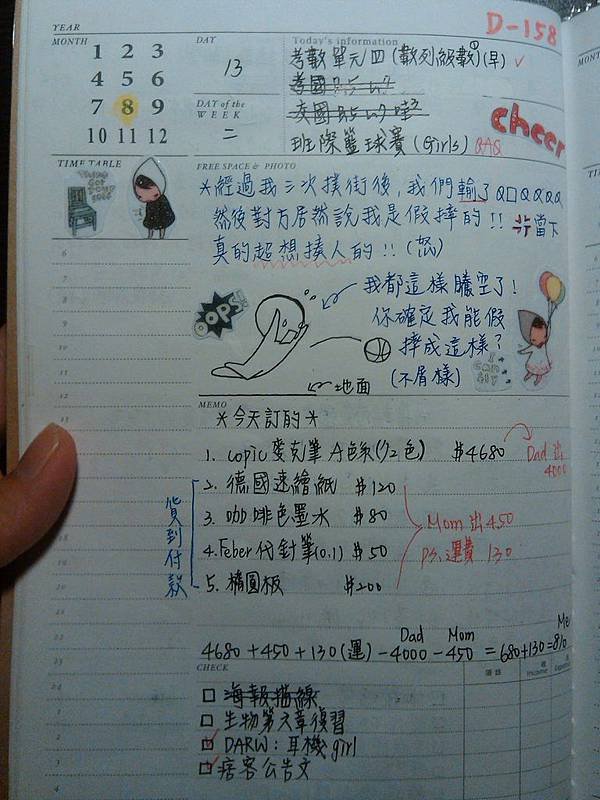 D-158
YEAR
MONTH
1 2 3
4 5 6
7 8 9
10 11 12
DAY
13
DAY of the WEEK
二
Today's information
考數單元四(數列級數①)(早) ✓
班際籃球賽(Girls) QAQ
cheer
TIME TABLE
FREE SPACE & PHOTO
*經過我三次撲街後,我們輸了Q口Q Q Q Q
然後對方居然說我是假摔的!! 當下
真的超想揍人的!!(怒)
OOPS!!
我都這樣騰空了!
你確定我能假
摔成這樣?
(不屑樣)
I CAN FLY
地面
MEMO
*今天訂的*
1. copic麥克筆 A色系(72色) $4680
Dad 出 4000
2. 德國速繪紙 $120
3. 咖啡色墨水 $80
4. Feber代針筆(0.1) $50
5. 橢圓板 $200
貨到付款
Mom 出 450
PS. 運費 130
Dad Mom Me
4680+450+130(運)-4000-450 =680+130=810
CHECK
□ 海報描線
□ 生物第六章復習
□ DARW:耳機girl
□ 痞客公告文
6
7
8
9
10
11
12
13
20
22
23
24
1
2
3
4